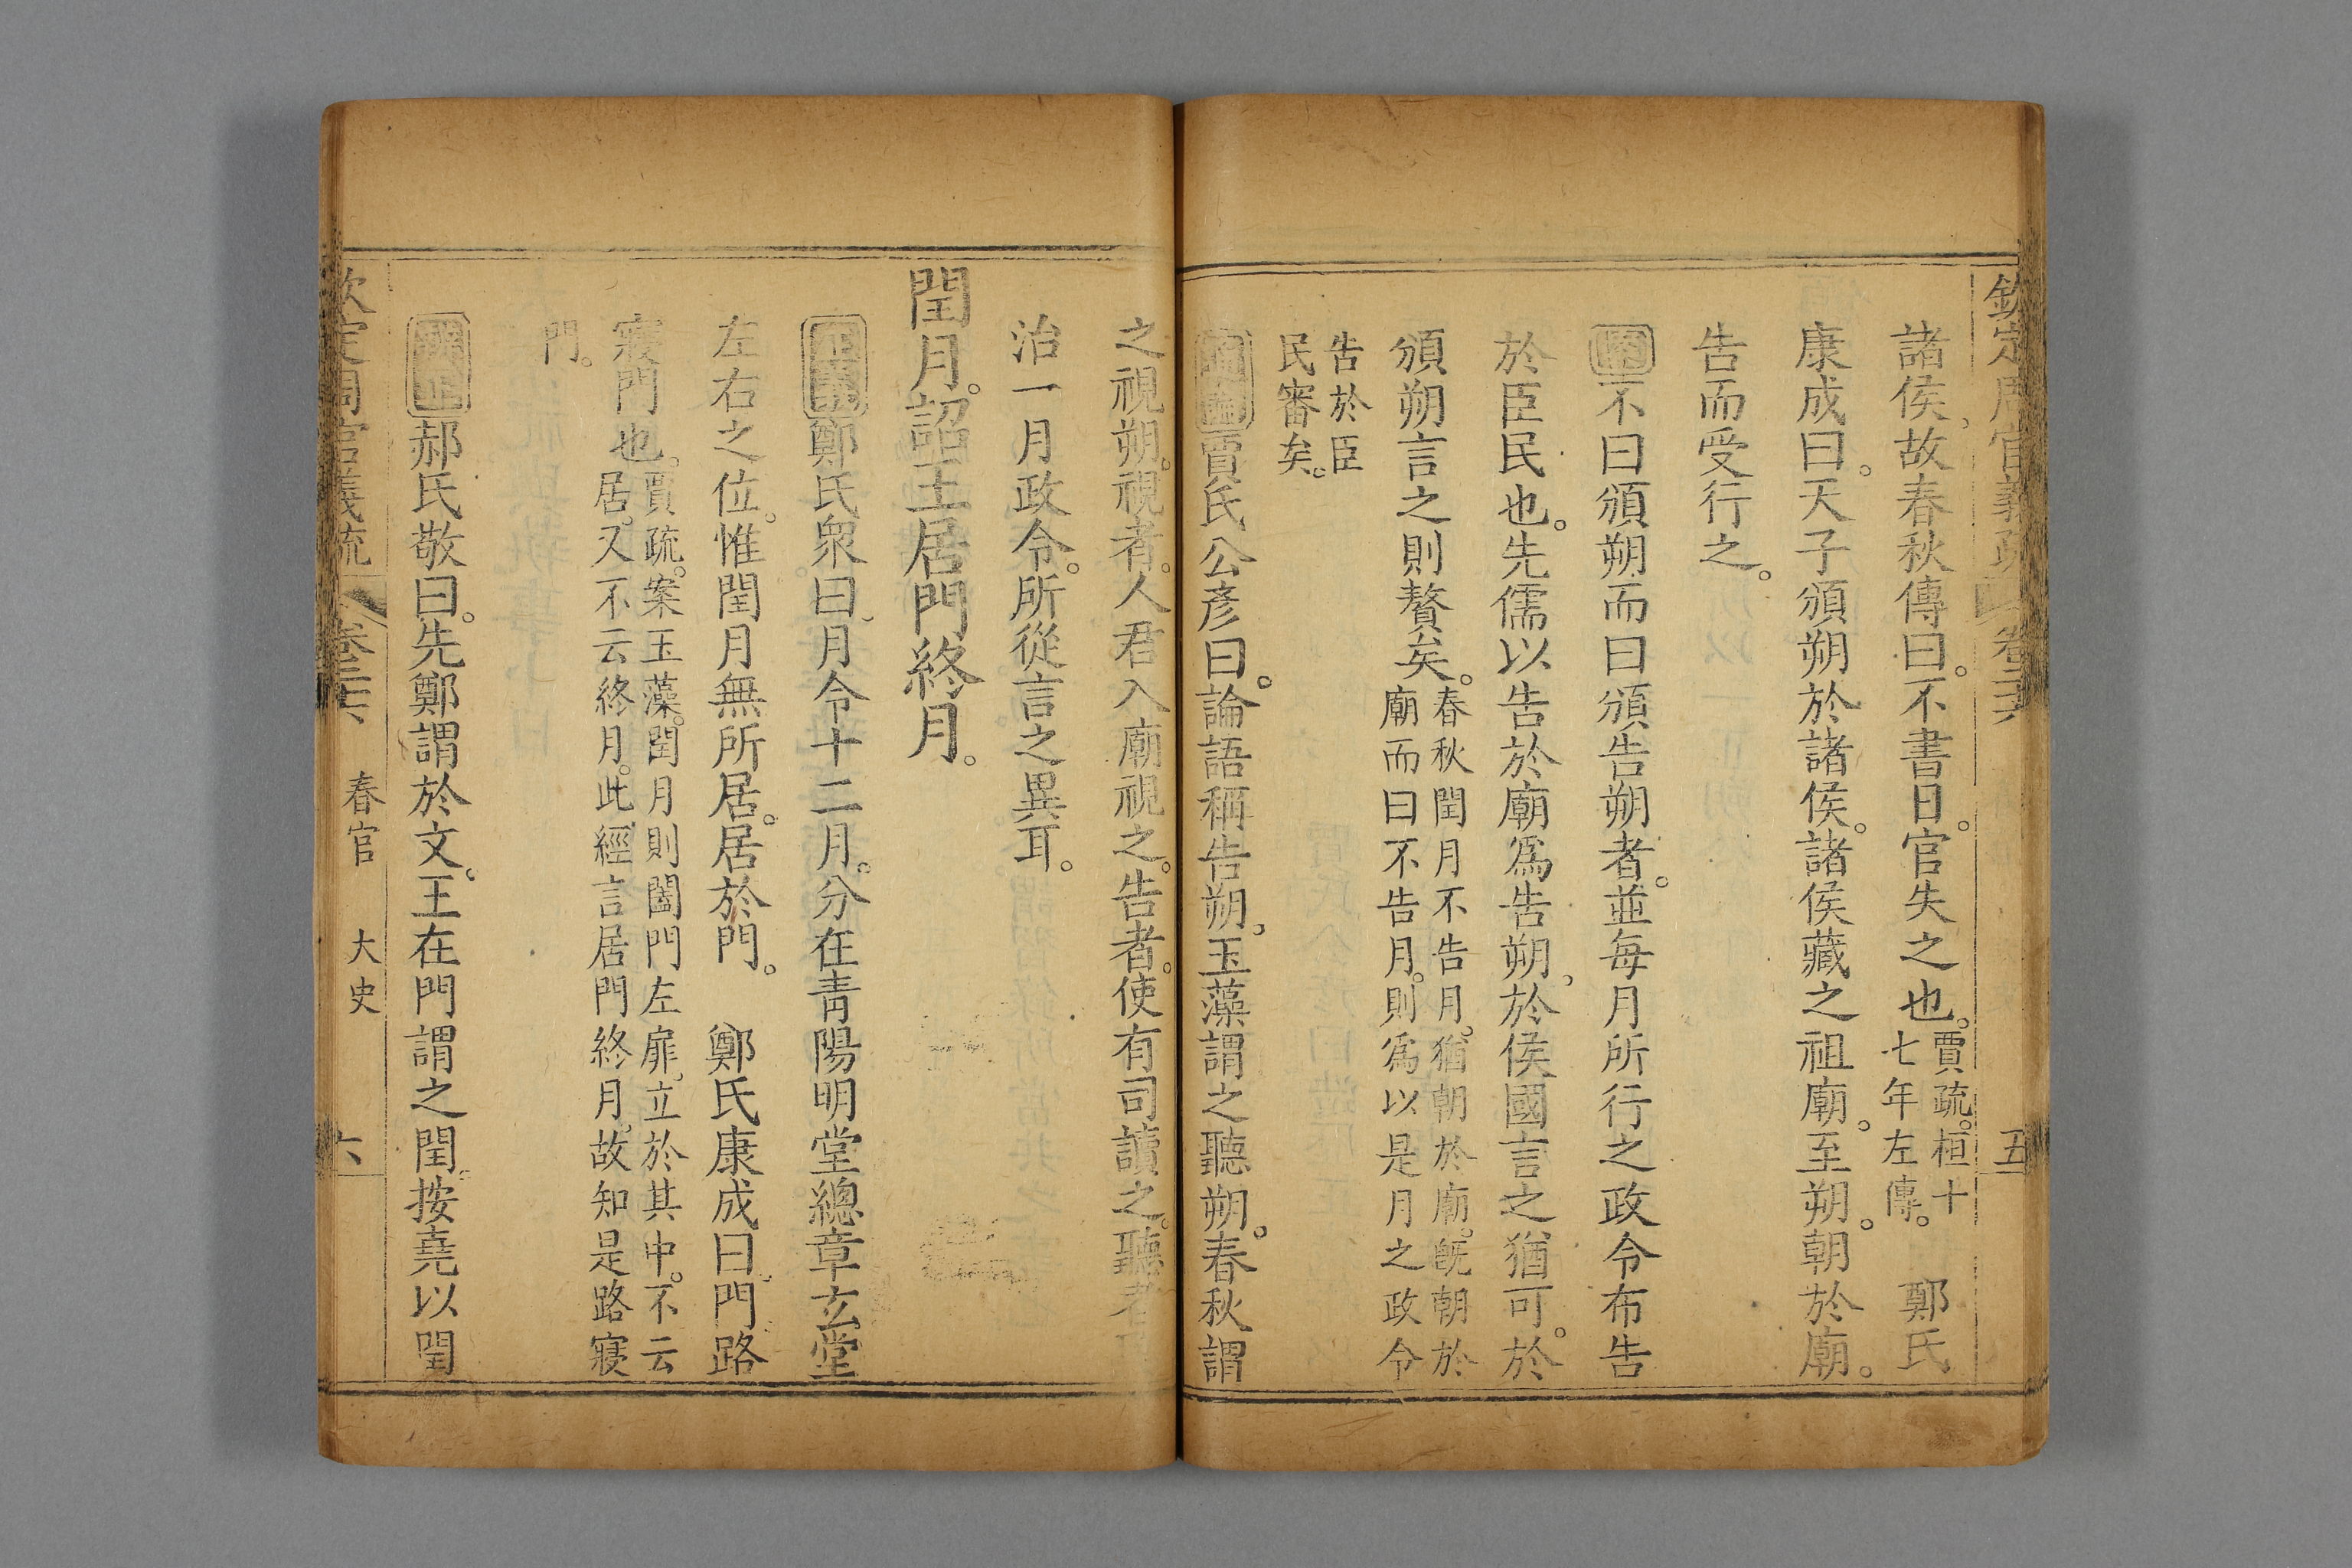 欽定周官義疏 卷二十六 五
諸侯故春秋傳曰。不書日。官失之也。賈疏。桓十七年左傳。 鄭氏
康成曰。天子頒朔於諸侯。諸侯藏之祖廟。至朔。朝於廟。
告而受行之。
案不曰頒朔而曰頒告朔者。並每月所行之政令布告
於臣民也。先儒以告於廟爲告朔。於侯國言之猶可。於
頒朔言之則贅矣。春秋閏月不告月。猶朝於廟。旣朝於
廟而曰不告月。則爲以是月之政令
告於臣
民審矣。
通論賈氏公彥曰。論語稱告朔。玉藻謂之聽朔。春秋謂
之視朔。視者。人君入廟視之。告者。使有司讀之。聽者
治一月政令。所從言之異耳。
閏月。詔王居門終月。
正義鄭氏衆曰。月令十二月。分在靑陽明堂總章玄堂
左右之位。惟閏月無所居。居於門。 鄭氏康成曰。門路
寢門也。賈疏。案玉藻。閏月則闔門左扉。立於其中。不云
居。又不云終月。此經言居門終月。故知是路寢
門。
辨正郝氏敬曰。先鄭謂於文。王在門謂之閏。按堯以閏
欽定周官義疏 卷二十六 春官 大史 六